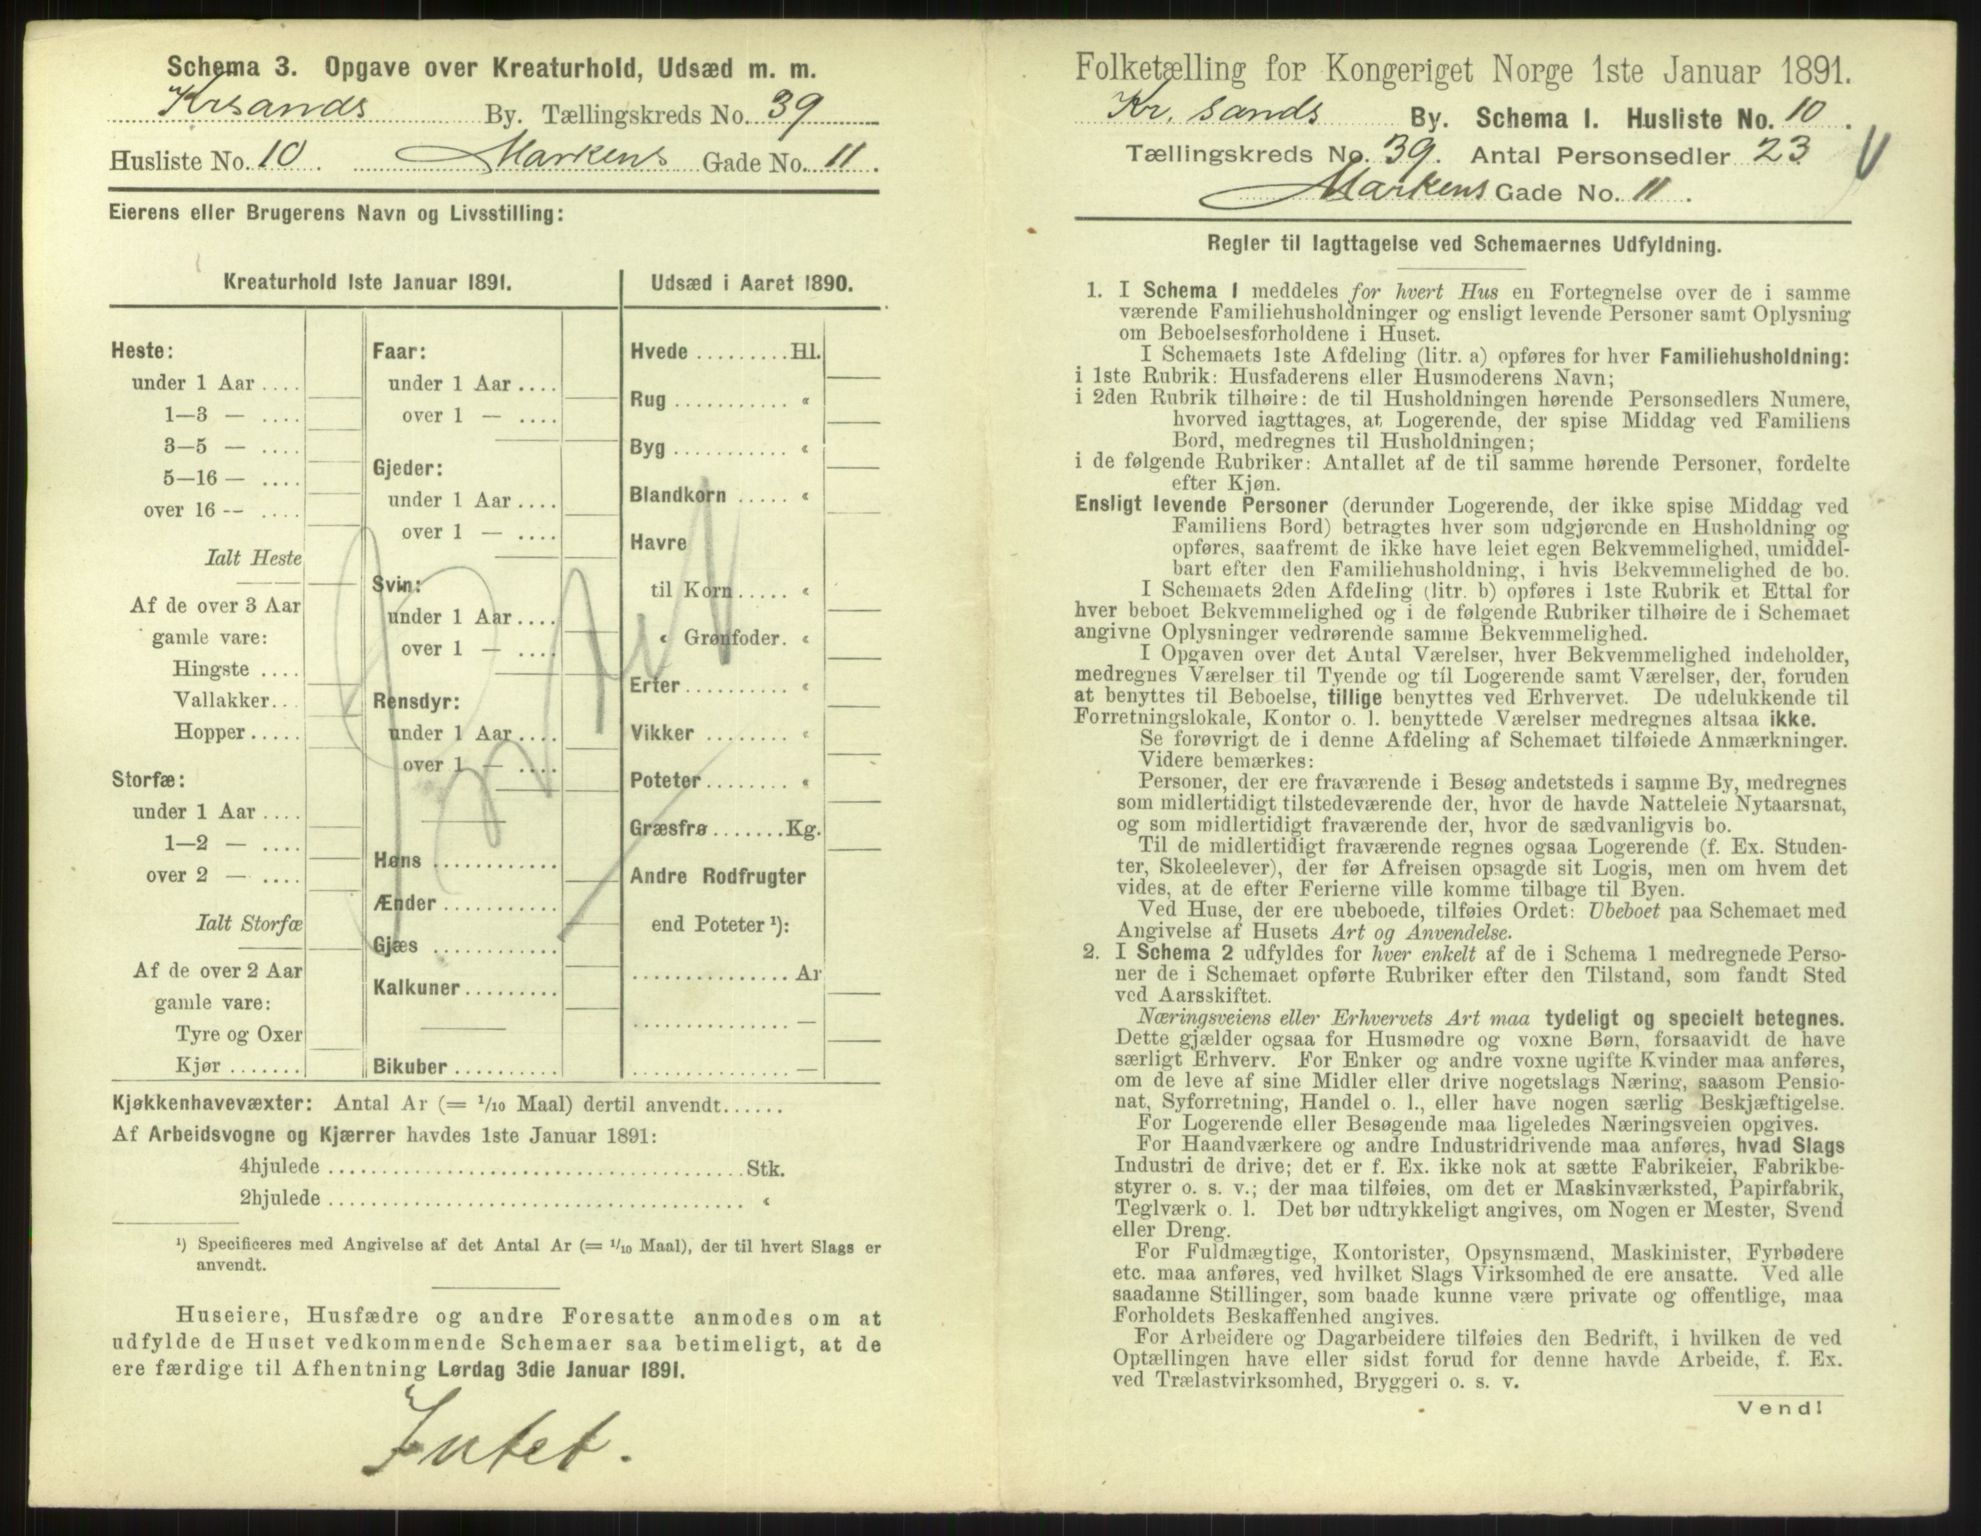 Schema 3. Opgave over Kreaturhold, Udsæd m. m.
Krsands By. Tællingskreds No. 39
Husliste No. 10 . Markens Gade No. 11 .
Eierens eller Brugerens Navn og Livsstilling:
Kreaturhold 1ste Januar 1891.
Heste:
under 1 Aar ....
1—3 — ....
3—5 — ....
5—16 — ....
over 16 -- ....
Ialt Heste
Af de over 3 Aar
gamle vare:
Hingste ....
Vallakker...
Hopper.....
Storfæ:
under 1 Aar ....
1—2 — ....
over 2 — ....
Ialt Storfæ
Af de over 2 Aar
gamle vare:
Tyre og Oxer
Kjør .......
Faar:
under 1 Aar ....
over 1 — ....
Gjeder:
under 1 Aar ....
over 1 — ....
Svin:
under 1 Aar ....
over 1 — ....
Rensdyr:
under 1 Aar ....
over 1 — ....
Høns ...........
Ænder ..........
Gjæs ...........
Kalkuner.........
Bikuber .........
Udsæd i Aaret 1890.
Hvede .........Hl.
Rug ........... «
Byg ........... «
Blandkorn ..... «
Havre
til Korn ..... «
« Grønfoder. «
Erter .......... «
Vikker ........ «
Poteter........ «
Græsfrø .......Kg.
Andre Rodfrugter
end Poteter ¹):
............... Ar
............... —
............... —
Kjøkkenhavevæxter: Antal Ar (= ¹/₁₀ Maal) dertil anvendt......
Af Arbeidsvogne og Kjærrer havdes 1ste Januar 1891:
4hjulede ........................................Stk.
2hjulede ........................................ «
¹) Specificeres med Angivelse af det Antal Ar (= ¹/₁₀ Maal), der til hvert Slags er
anvendt.
Huseiere, Husfædre og andre Foresatte anmodes om at
udfylde de Huset vedkommende Schemaer saa betimeligt, at de
ere færdige til Afhentning Lørdag 3die Januar 1891.
Intet.
Folketælling for Kongeriget Norge 1ste Januar 1891.
Kr. sands By. Schema I. Husliste No. 10 .
Tællingskreds No. 39. Antal Personsedler 23
Markens Gade No. 11 .
Regler til Iagttagelse ved Schemaernes Udfyldning.
1. I Schema 1 meddeles for hvert Hus en Fortegnelse over de i samme
værende Familiehusholdninger og ensligt levende Personer samt Oplysning
om Beboelsesforholdene i Huset.
I Schemaets 1ste Afdeling (litr. a) opføres for hver Familiehusholdning:
i 1ste Rubrik: Husfaderens eller Husmoderens Navn;
i 2den Rubrik tilhøire: de til Husholdningen hørende Personsedlers Numere,
hvorved iagttages, at Logerende, der spise Middag ved Familiens
Bord, medregnes til Husholdningen;
i de følgende Rubriker: Antallet af de til samme hørende Personer, fordelte
efter Kjøn.
Ensligt levende Personer (derunder Logerende, der ikke spise Middag ved
Familiens Bord) betragtes hver som udgjørende en Husholdning og
opføres, saafremt de ikke have leiet egen Bekvemmelighed, umiddel-
bart efter den Familiehusholdning, i hvis Bekvemmelighed de bo.
I Schemaets 2den Afdeling (litr. b) opføres i 1ste Rubrik et Ettal for
hver beboet Bekvemmelighed og i de følgende Rubriker tilhøire de i Schemaet
angivne Oplysninger vedrørende samme Bekvemmelighed.
I Opgaven over det Antal Værelser, hver Bekvemmelighed indeholder,
medregnes Værelser til Tyende og til Logerende samt Værelser, der, foruden
at benyttes til Beboelse, tillige benyttes ved Erhvervet. De udelukkende til
Forretningslokale, Kontor o. l. benyttede Værelser medregnes altsaa ikke.
Se forøvrigt de i denne Afdeling af Schemaet tilføiede Anmærkninger.
Videre bemærkes:
Personer, der ere fraværende i Besøg andetsteds i samme By, medregnes
som midlertidigt tilstedeværende der, hvor de havde Natteleie Nytaarsnat,
og som midlertidigt fraværende der, hvor de sædvanligvis bo.
Til de midlertidigt fraværende regnes ogsaa Logerende (f. Ex. Studen-
ter, Skoleelever), der før Afreisen opsagde sit Logis, men om hvem det
vides, at de efter Ferierne ville komme tilbage til Byen.
Ved Huse, der ere ubeboede, tilføies Ordet: Ubeboet paa Schemaet med
Angivelse af Husets Art og Anvendelse.
2. I Schema 2 udfyldes for hver enkelt af de i Schema 1 medregnede Perso-
ner de i Schemaet opførte Rubriker efter den Tilstand, som fandt Sted
ved Aarsskiftet.
Næringsveiens eller Erhvervets Art maa tydeligt og specielt betegnes.
Dette gjælder ogsaa for Husmødre og voxne Børn, forsaavidt de have
særligt Erhverv. For Enker og andre voxne ugifte Kvinder maa anføres,
om de leve af sine Midler eller drive nogetslags Næring, saasom Pensio-
nat, Syforretning, Handel o. l., eller have nogen særlig Beskjæftigelse.
For Logerende eller Besøgende maa ligeledes Næringsveien opgives.
For Haandværkere og andre Industridrivende maa anføres, hvad Slags
Industri de drive; det er f. Ex. ikke nok at sætte Fabrikeier, Fabrikbe-
styrer o. s. v.; der maa tilføies, om det er Maskinværksted, Papirfabrik,
Teglværk o. l. Det bør udtrykkeligt angives, om Nogen er Mester, Svend
eller Dreng.
For Fuldmægtige, Kontorister, Opsynsmænd, Maskinister, Fyrbødere
etc. maa anføres, ved hvilket Slags Virksomhed de ere ansatte. Ved alle
saadanne Stillinger, som baade kunne være private og offentlige, maa
Forholdets Beskaffenhed angives.
For Arbeidere og Dagarbeidere tilføies den Bedrift, i hvilken de ved
Optællingen have eller sidst forud for denne havde Arbeide, f. Ex.
ved Trælastvirksomhed, Bryggeri o. s. v.
Vend!